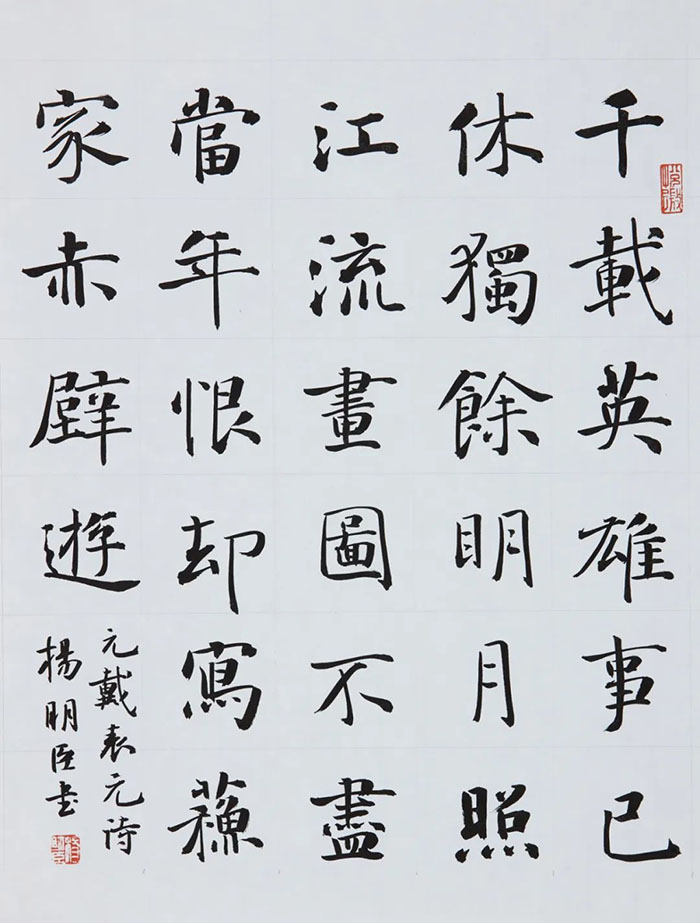 千載英雄事已
休獨餘明月照
江流畫圖不盡
當年恨却寫蘓
家赤壁遊
元戴表元詩
楊明臣書